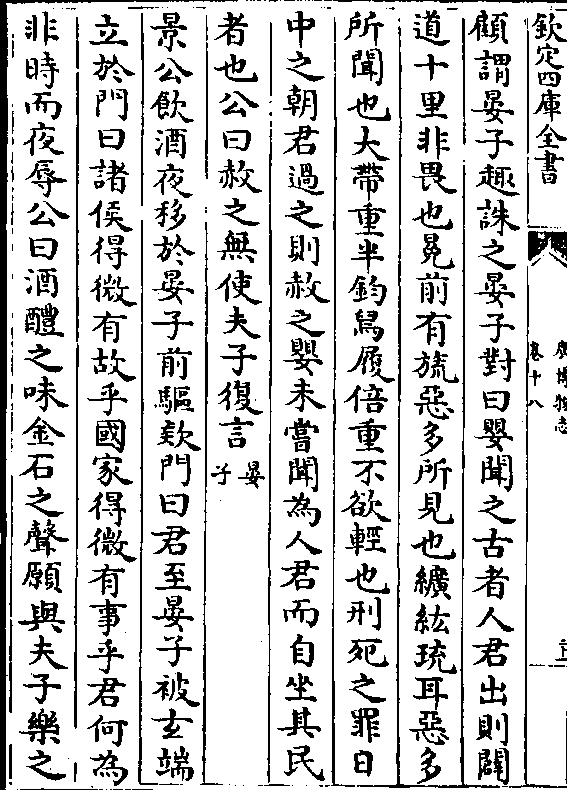 欽定四庫全書
廣博物志
卷十八
顧謂晏子趣誅之晏子對曰嬰聞之古者人君出則闢
道十里非畏也冕前有旒惡多所見也纊紘琉耳惡多
所聞也大帶重半鈞舄履倍重不欲輕也刑死之罪日
中之朝君過之則赦之嬰未嘗聞為人君而自坐其民
者也公曰赦之無使夫子復言晏子
景公飲酒夜移於晏子前驅欵門曰君至晏子被玄端
立於門曰諸侯得微有故乎國家得微有事乎君何為
非時而夜辱公曰酒醴之味金石之聲願與夫子樂之